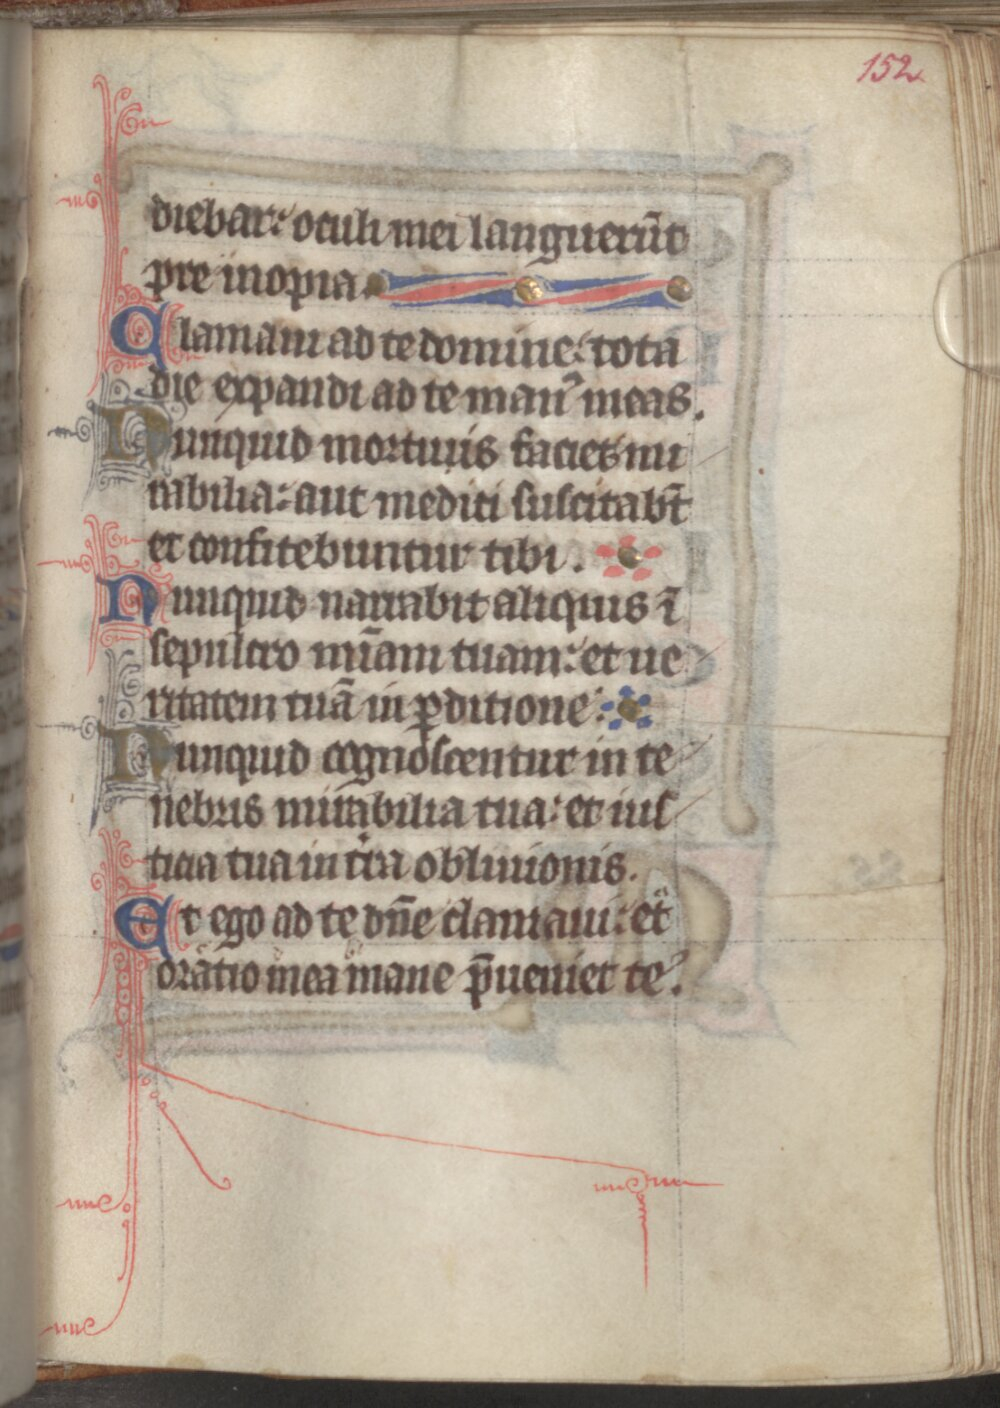 152
diebar: oculi mei languerūt
pre inopia.
Clamaui ad te domine: tota
die expandi ad te man᷒ meas.
Nunquid mortuis facies mi
rabilia: aut medici suscitabūt
et confitebuntur tibi.
Nunquid narrabit aliquis ī
sepulcro mīam tuam: et ue
ritatem tuā in ꝑditione:
Nunquid cognoscentur in te
nebris mirabilia tua: et ius
ticia tua in t̄ra obliuionis.
Et ego ad te dn̄e clamaui: et
oratio mea mane p̄ueniet te.